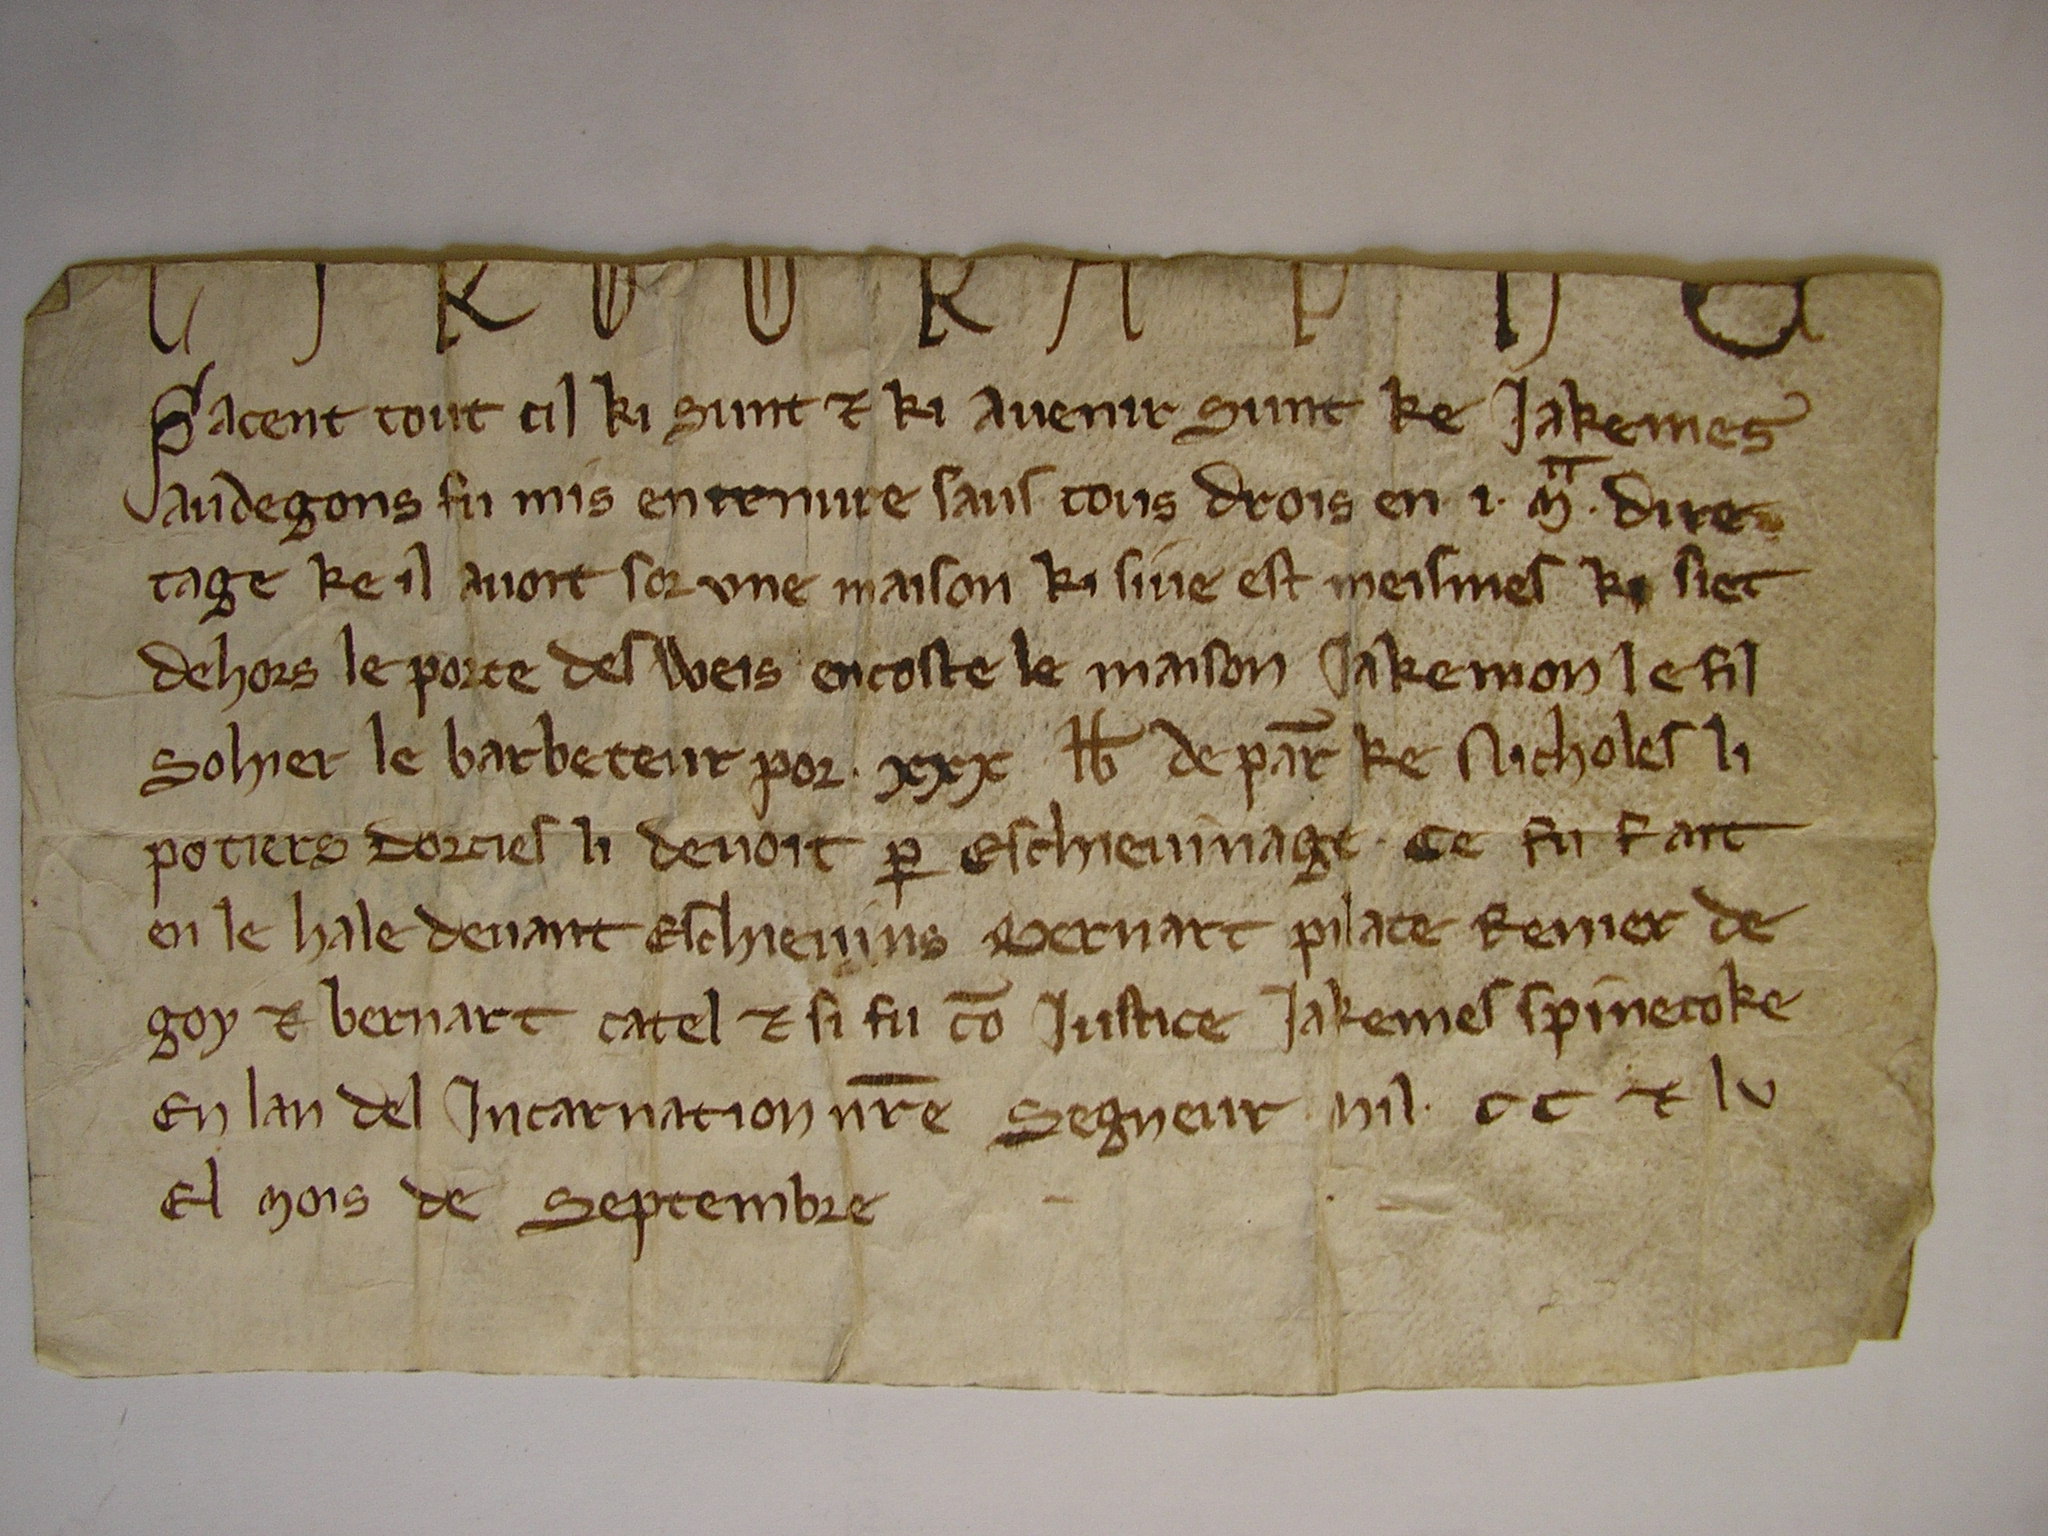 CIROURAPHE
Sacent tout cil ki sunt ⁊ ki auenir sunt ke Jakemes
audegons fu mis entenure saus tous drois en .i. m̄. dire
tage ke il auoit sor vne maison ki siue est meismes ki siet
dehors le porte des Weis encoste le maison Jakemon le fil
Sohier le barbeteur por . xxx lƀ de par̄ ke Nicholes li
potiers dorcies li deuoit ꝑ Eschieuinage . Ce fu Fait
en le hale deuant Eschieuins Bernart pilate Renier de
goy ⁊ bernart catel ⁊ si fu cō Justice Jakemes spinecoke
En lan del Incarnation nr̄e Segneur . mil . CC ⁊ lv
El Mois de Septembre